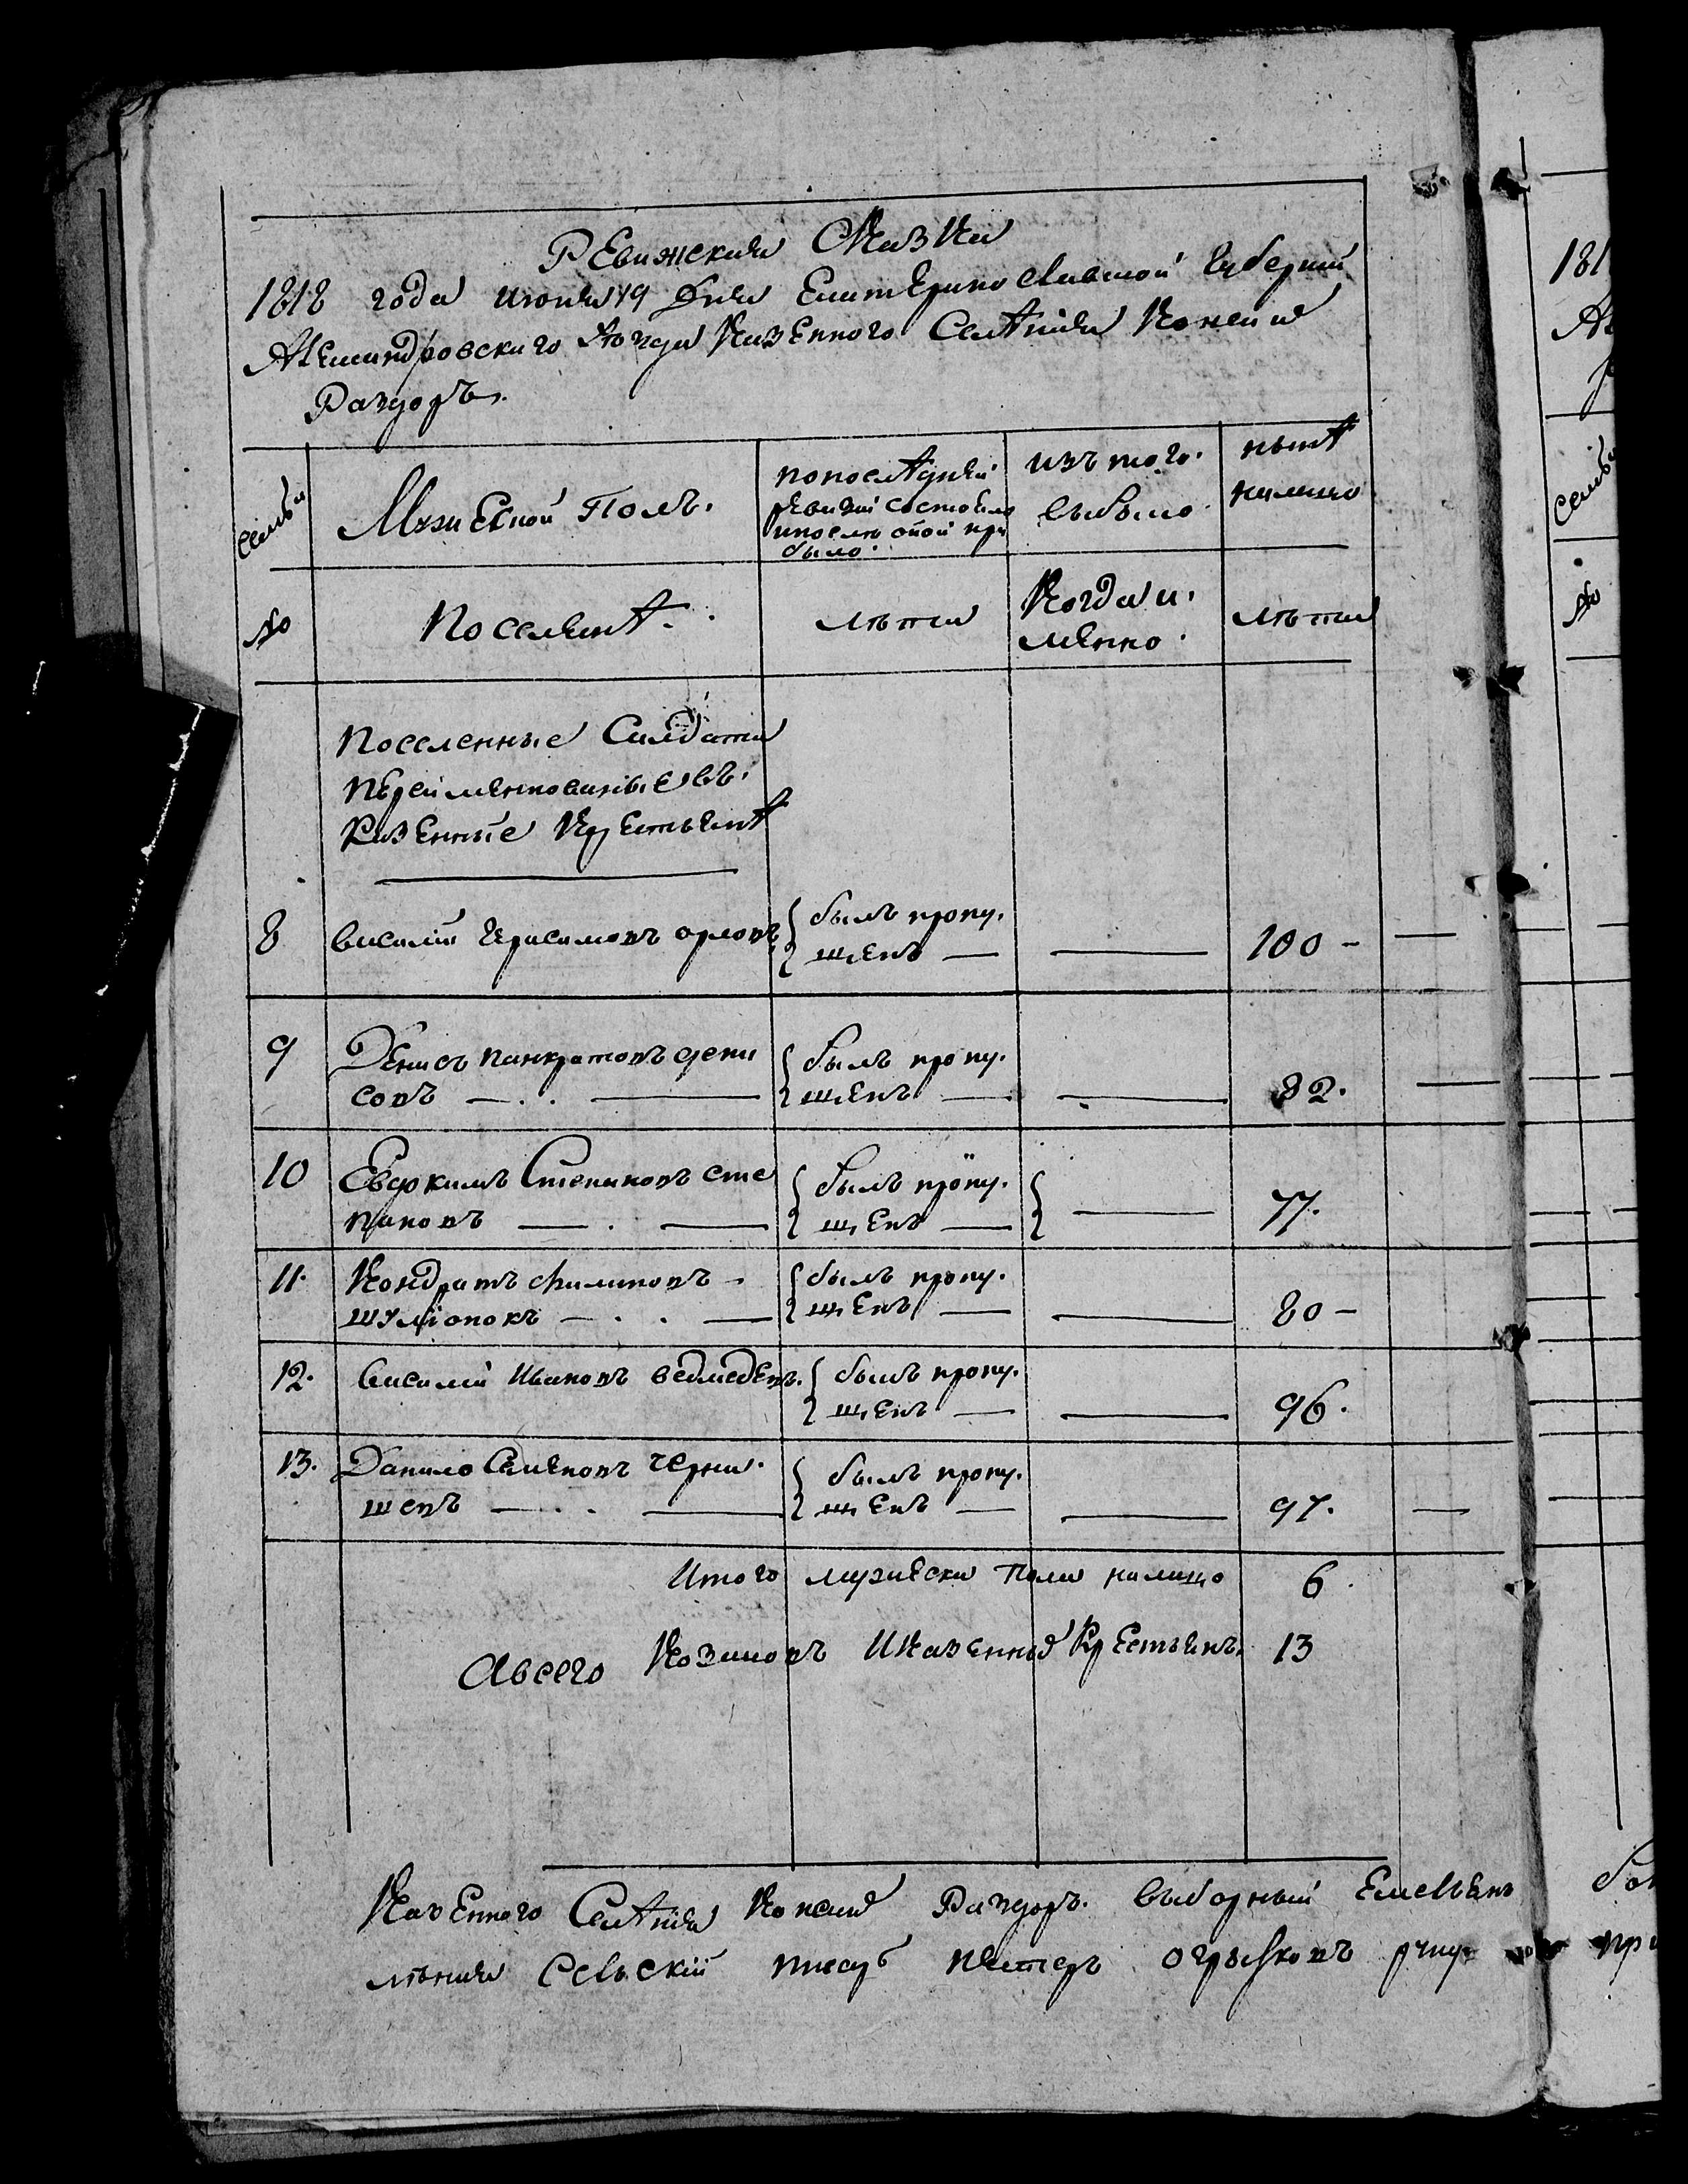 Ревижская Сказка
1818 года июня 19 дня Екатеринославской Губернии
Александровского Аезда Казенного Селѣния Конски
Раздоръ.
семьи
Мужеской Полъ.
попослѣдней
ревизии состояло
ипослѣ оной при
было.
изъ того.
выбыло.
нынѣ
налицо
№
Поселянѣ
лѣта
Когда и.
мянно.
лѣта
Поселенные Салдата
переименованные въ.
Казенные Крестьянѣ
8 василий Герасимовъ орловъ былъ пропу.
щенъ — 100 -
9 Денисъ панкратовъ дени былъ пропу.
совъ — щенъ — 82.
10 Евдокимъ Степановъ сте былъ пропу.
пановъ — щенъ — 77.
11. Кондратъ филиповъ - былъ пропу.
— щенъ — 80 -
12. василий Ивановъ ведмедевъ. былъ пропу.
щенъ — 96.
13. Данило Семеновъ черны. былъ пропу.
шевъ — щенъ — 97.
Итого мужеска Пола налицо 6.
Авсего Козаковъ ИКазенныхъ Крестьянъ. 13
Казенного Селѣния Конскихъ Раздоръ. выборный Емельянъ
сельский писарь
181
семьи
№